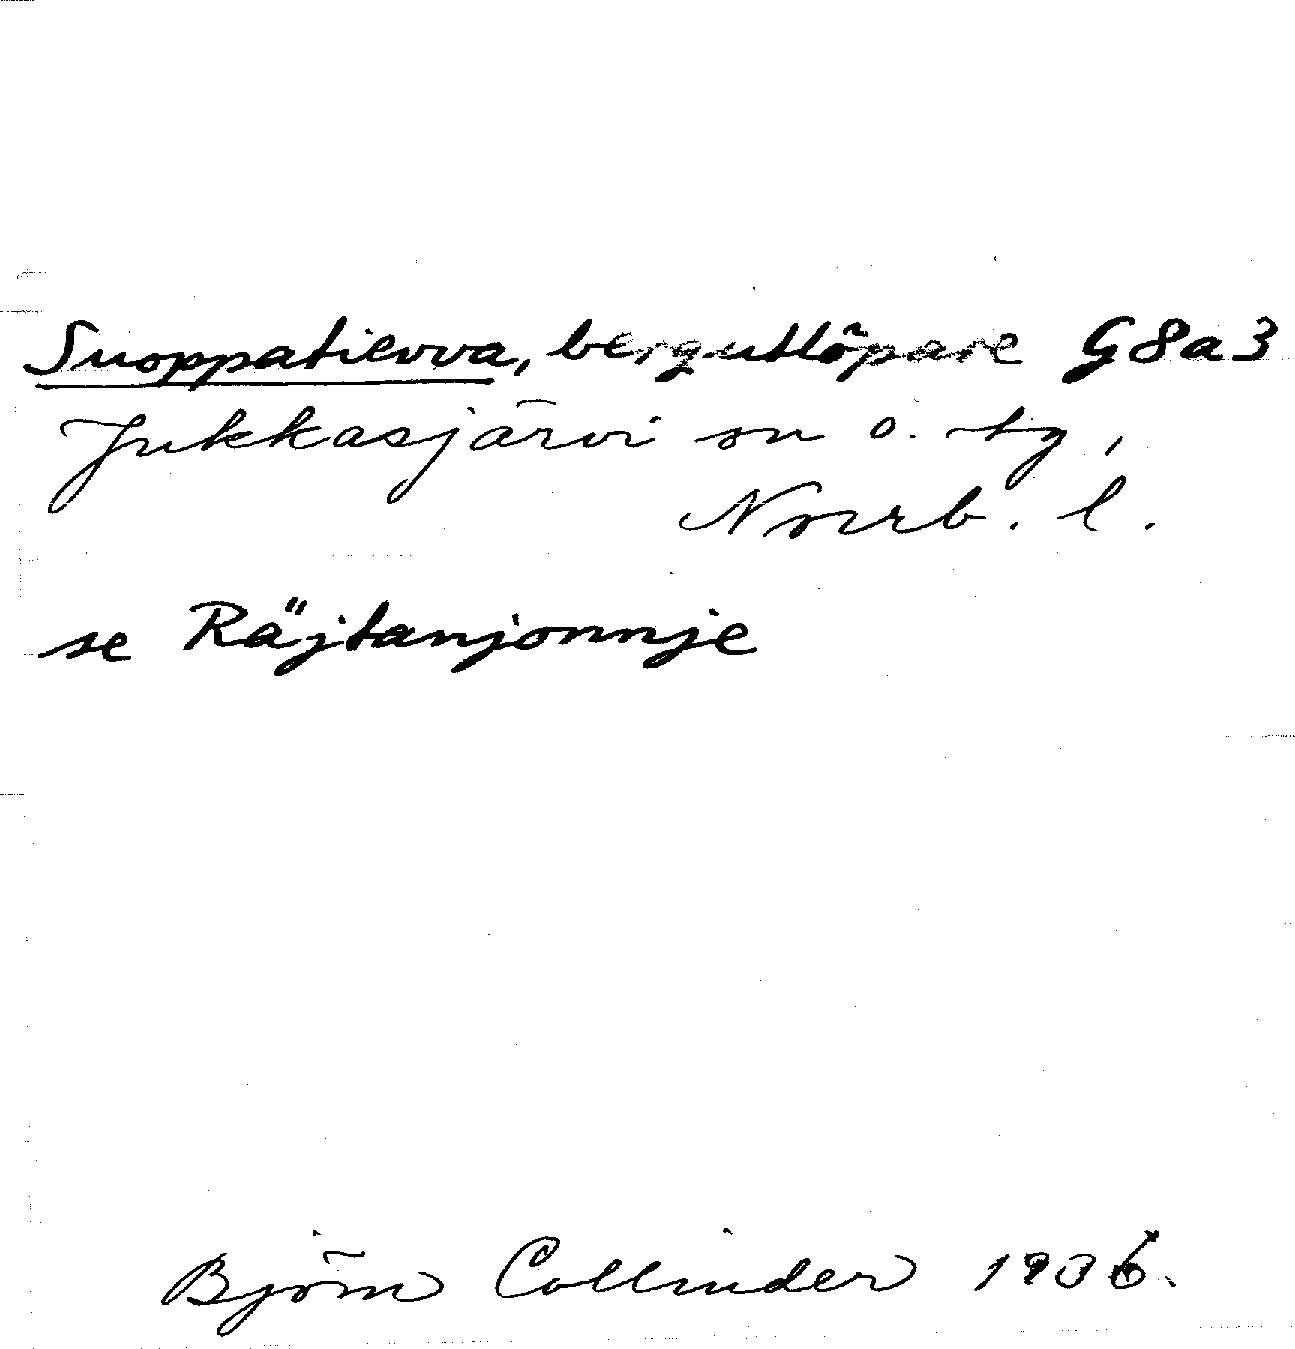 Suoppatievva, bergutlöpare G8a3
Jukkasjärvi sn o. tg,
Norrb. l.
se Räjtanjonnje
Björn Collinder 1936.